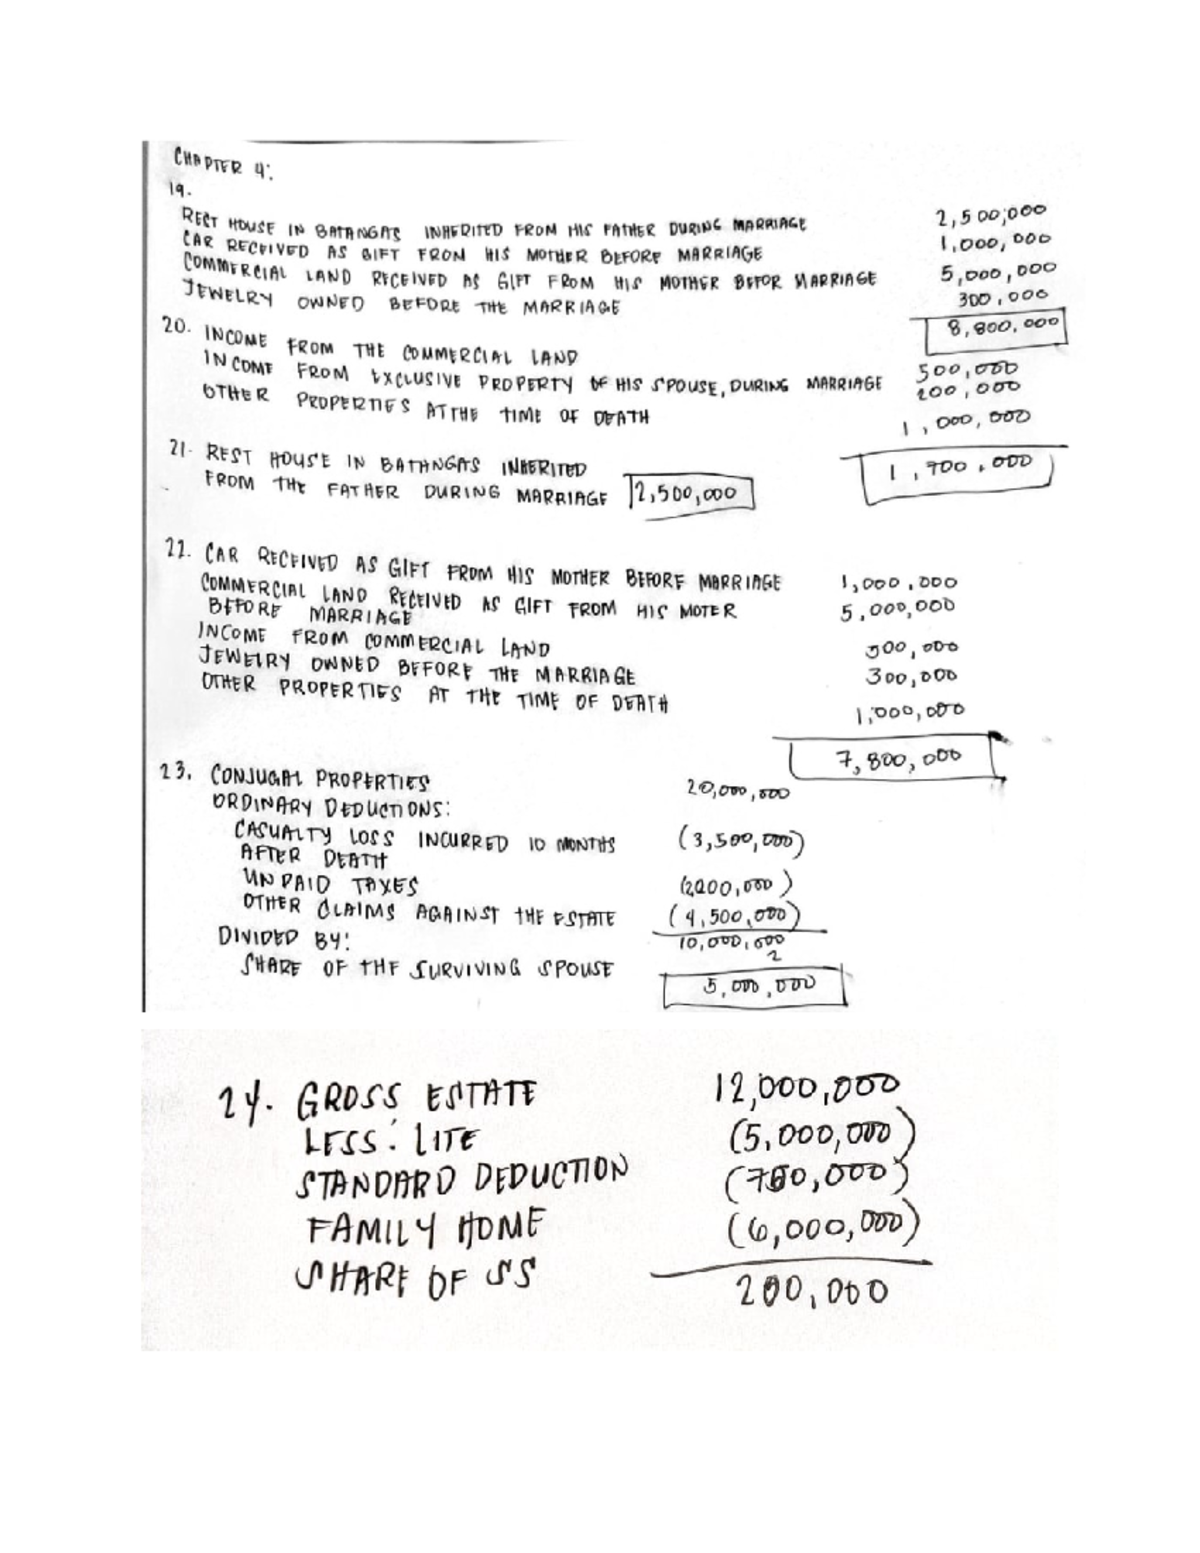 CHAPTER 4:
19.
REST HOUSE IN BATANGAS INHERITED FROM HIS FATHER DURING MARRIAGE 2,500,000
CAR RECEIVED AS GIFT FROM HIS MOTHER BEFORE MARRIAGE 1,000,000
COMMERCIAL LAND RECEIVED AS GIFT FROM HIS MOTHER BEFOR MARRIAGE 5,000,000
JEWELRY OWNED BEFORE THE MARRIAGE 300,000
8,800,000
20. INCOME FROM THE COMMERCIAL LAND 500,000
INCOME FROM EXCLUSIVE PROPERTY OF HIS SPOUSE, DURING MARRIAGE 200,000
OTHER PROPERTIES AT THE TIME OF DEATH 1,000,000
1,700,000
21. REST HOUSE IN BATANGAS INHERITED
FROM THE FATHER DURING MARRIAGE 2,500,000
22. CAR RECEIVED AS GIFT FROM HIS MOTHER BEFORE MARRIAGE 1,000,000
COMMERCIAL LAND RECEIVED AS GIFT FROM HIS MOTER 5,000,000
BEFORE MARRIAGE
INCOME FROM COMMERCIAL LAND 500,000
JEWELRY OWNED BEFORE THE MARRIAGE 300,000
OTHER PROPERTIES AT THE TIME OF DEATH 1,000,000
7,800,000
23. CONJUGAL PROPERTIES 20,000,000
ORDINARY DEDUCTIONS:
CASUALTY LOSS INCURRED 10 MONTHS (3,500,000)
AFTER DEATH
UNPAID TAXES
OTHER CLAIMS AGAINST THE ESTATE (4,500,000)
10,000,000
DIVIDED BY: 2
SHARE OF THE SURVIVING SPOUSE 5,000,000
24. GROSS ESTATE 12,000,000
LESS: LITE (5,000,000)
STANDARD DEDUCTION
FAMILY HOME (6,000,000)
SHARE OF SS 200,000